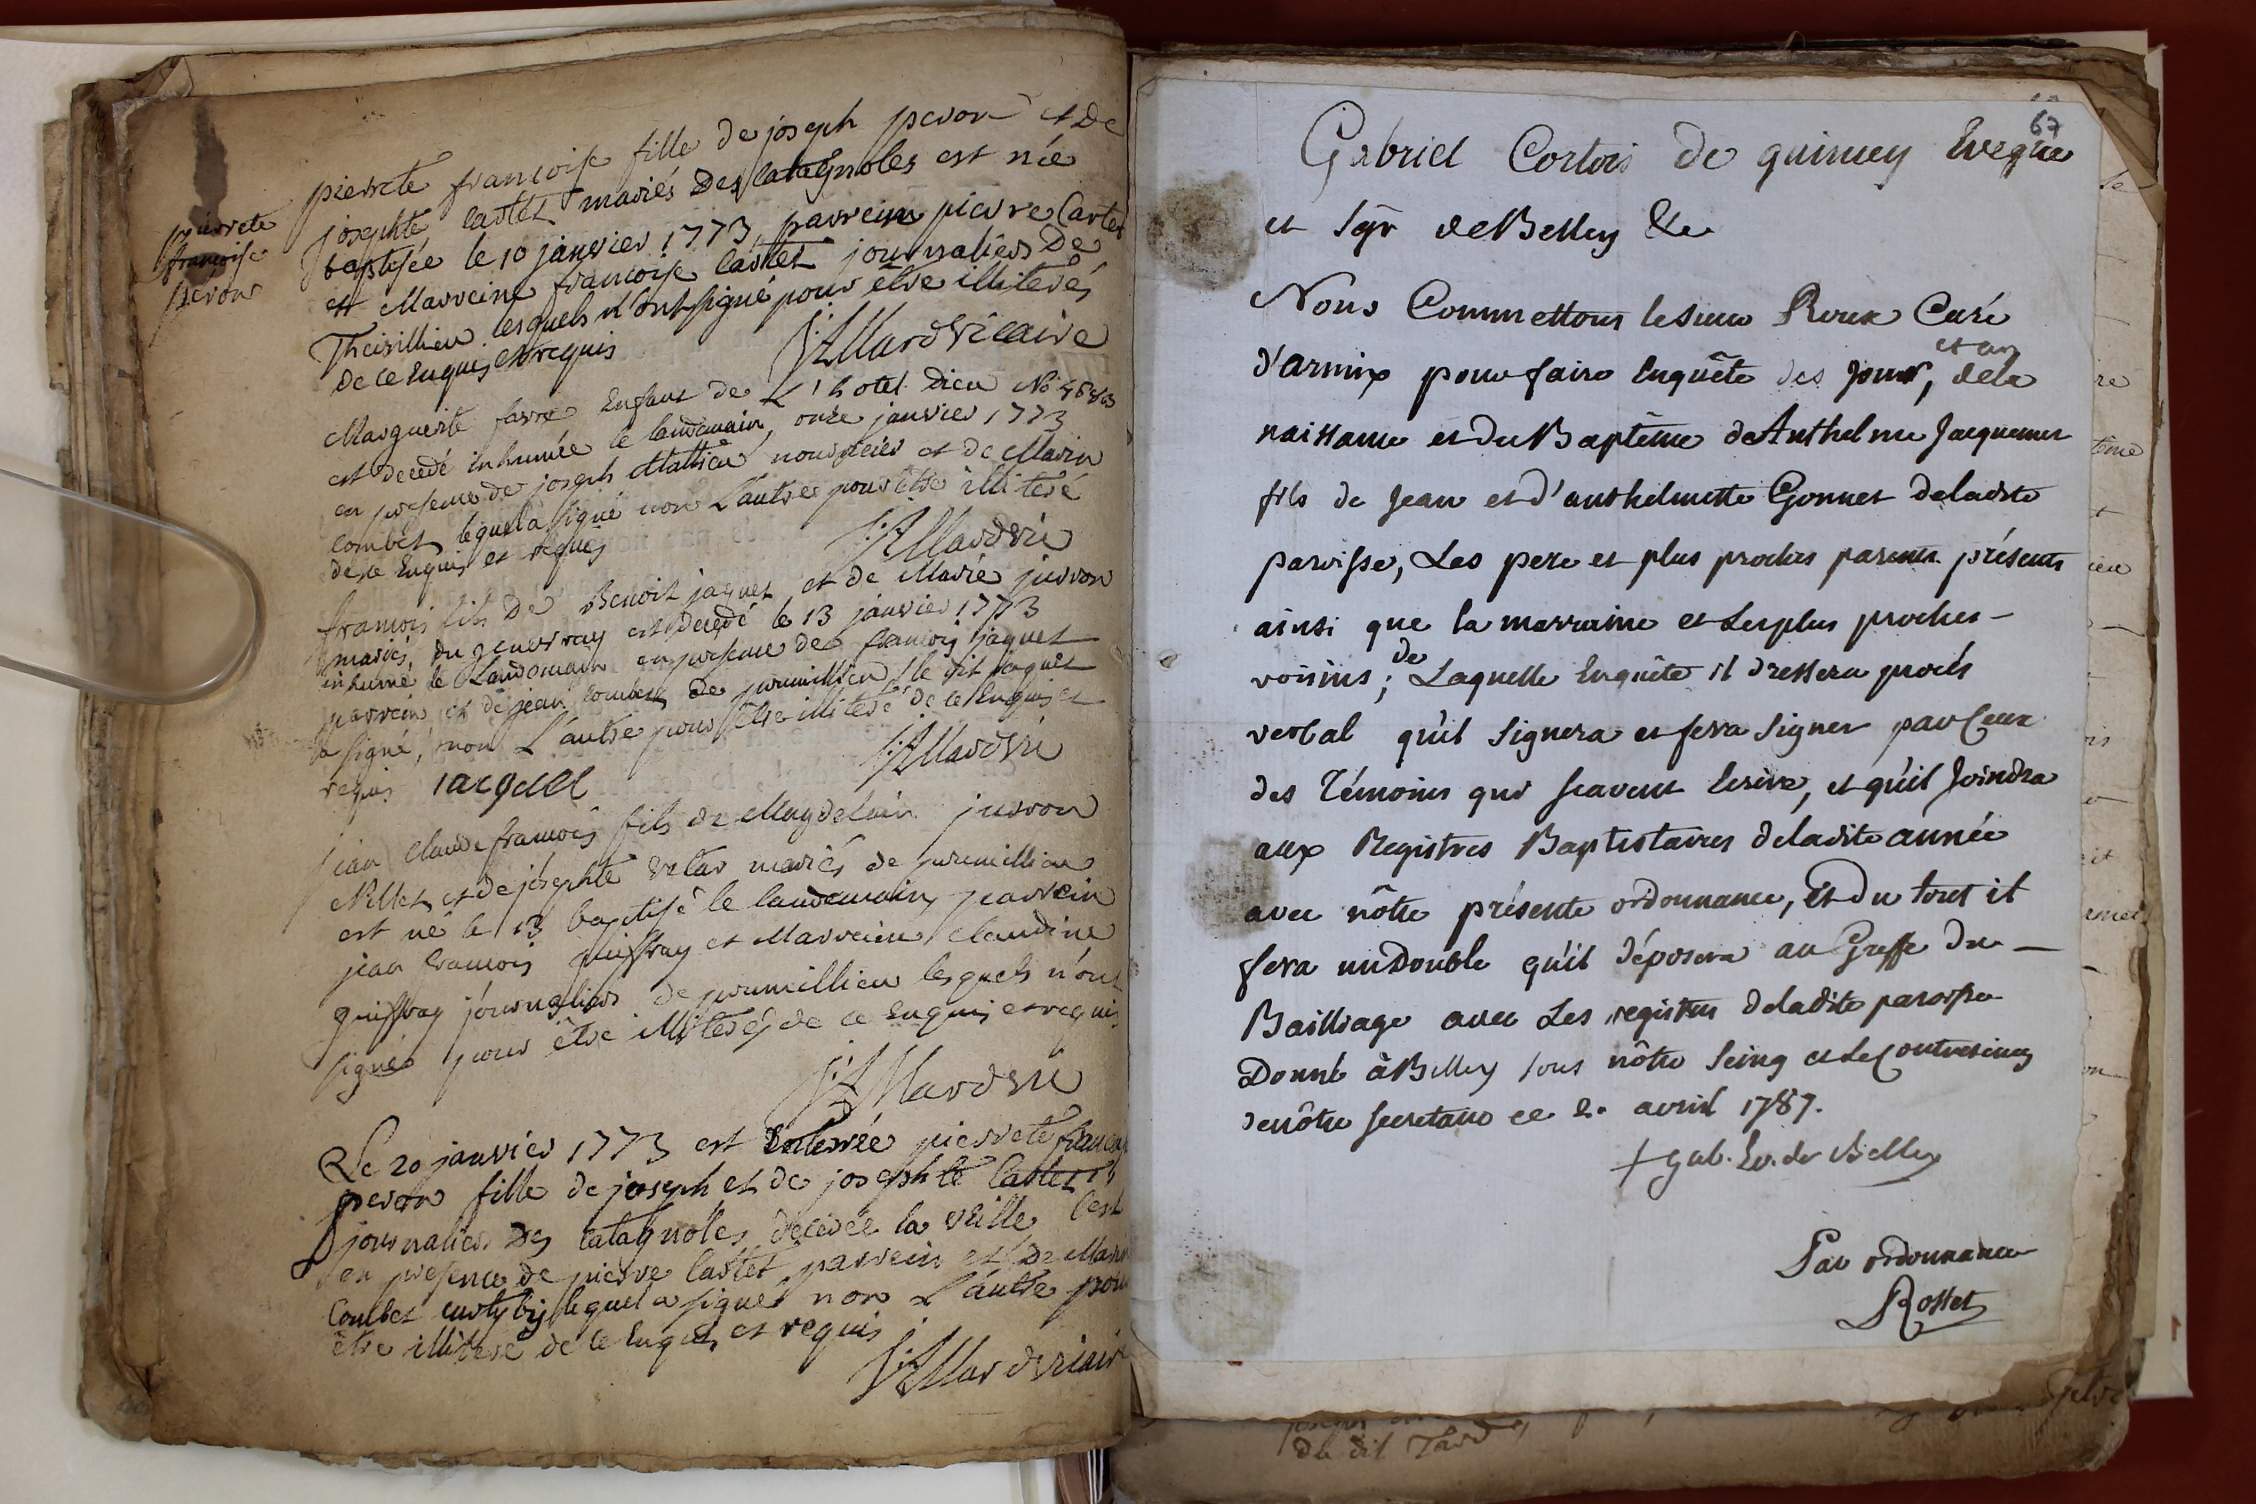 pierrete françoise fille de joseph peron et De
josephte cartet mariés Des catagnoles est née
baptisée le 10 janvier 1773, parrein pierre Cartet
et Marreine françoise cartet journaliers De
lesquels n'ont signé pour être illiterés
De ce enquis et requis
pierrete
françoise
peron
Vicaire
Marguerite favre Enfant de L'hotel Dieu No
est decedé inhumée le landemain, onze janvier 1773
en presence de joseph Mattieu nourricier et de Marin
combet, lequel a signé non L'autre pour être illiteré
de ce Enquis et requis
françois fils De Benoit jaquet et de Marie juvron
mariés, du genevray est decedé le 13 janvier 1773
inhumé le Landemain en presence de françois jaquet
parrein et de jean combet de prumillieu le dit jaquet
a signé, non L'autre pour être illiteré de ce Enquis et
requis jacquet
jean claude françois fils de Magdelain juvron
Nillet, et de josephte velar mariés de prumillieu
est né le 13 baptisé le landemain, parrein
jean françois guiffray et Marreine Claudine
guiffray journaliers de prumillieu lesquels n'ont
signés pour être illiterés de ce enquis et requis
Le 20 janvier 1773 est Enterrée pierrete françoise
peron fille de joseph et de josephte Cartet
journaliers Des catagnoles, décédée la veille
en presence de pierre Cartet parrein et De Marin
Combet lequel a signé non L'autre pour
être illiteré de ce Enquis et requis
67
Gabriel Cortois de quincey Eveque
et Sgr de Belley &c
Nous Commettons le sieur Roux Curé
d'armix pour faire Enquête des jour, et an dela
naissance et du Baptême de Anthelme Jacquemet
fils de Jean et d'anthelmette Gonnet deladite
paroisse, Les pere et plus proches parents présents
ainsi que la marraine et Les plus proches -
voisins; de Laquelle Enquête il dressera procés
verbal qu'il signera et fera signer par Ceux
des Témoins qui scavent Ecrire, et qu'il Joindra
aux Registres Baptistaires deladite année
avec nôtre présente ordonnance, Et du tout il
fera un Double qu'il déposera au Greffe du -
Bailliage avec Les registres deladite paroisse
Donné à Belley sous nôtre Seing et Le Contreseing
de nôtre secretaire ce 2. avril 1787.
+ gab. Ev. de Belley
Par ordonnance
Rosset
du dit